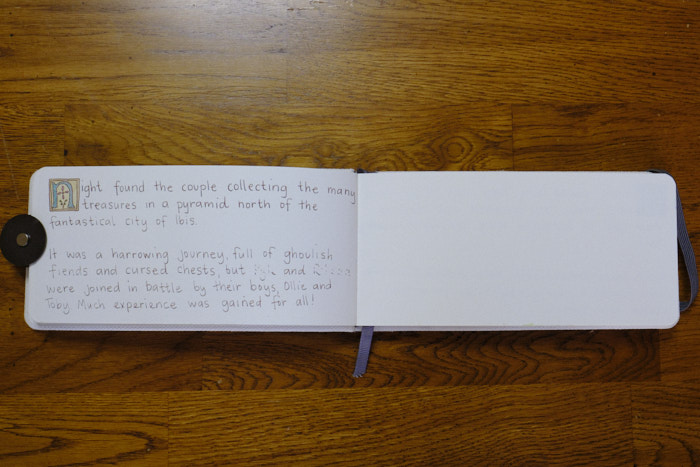 Night found the couple collecting the many
treasures in a pyramid north of the
fantastical city of Ibis.
It was a harrowing journey, full of ghoulish
fiends and cursed chests, but and
were joined in battle by their boys, Ollie and
Toby. Much experience was gained for all!